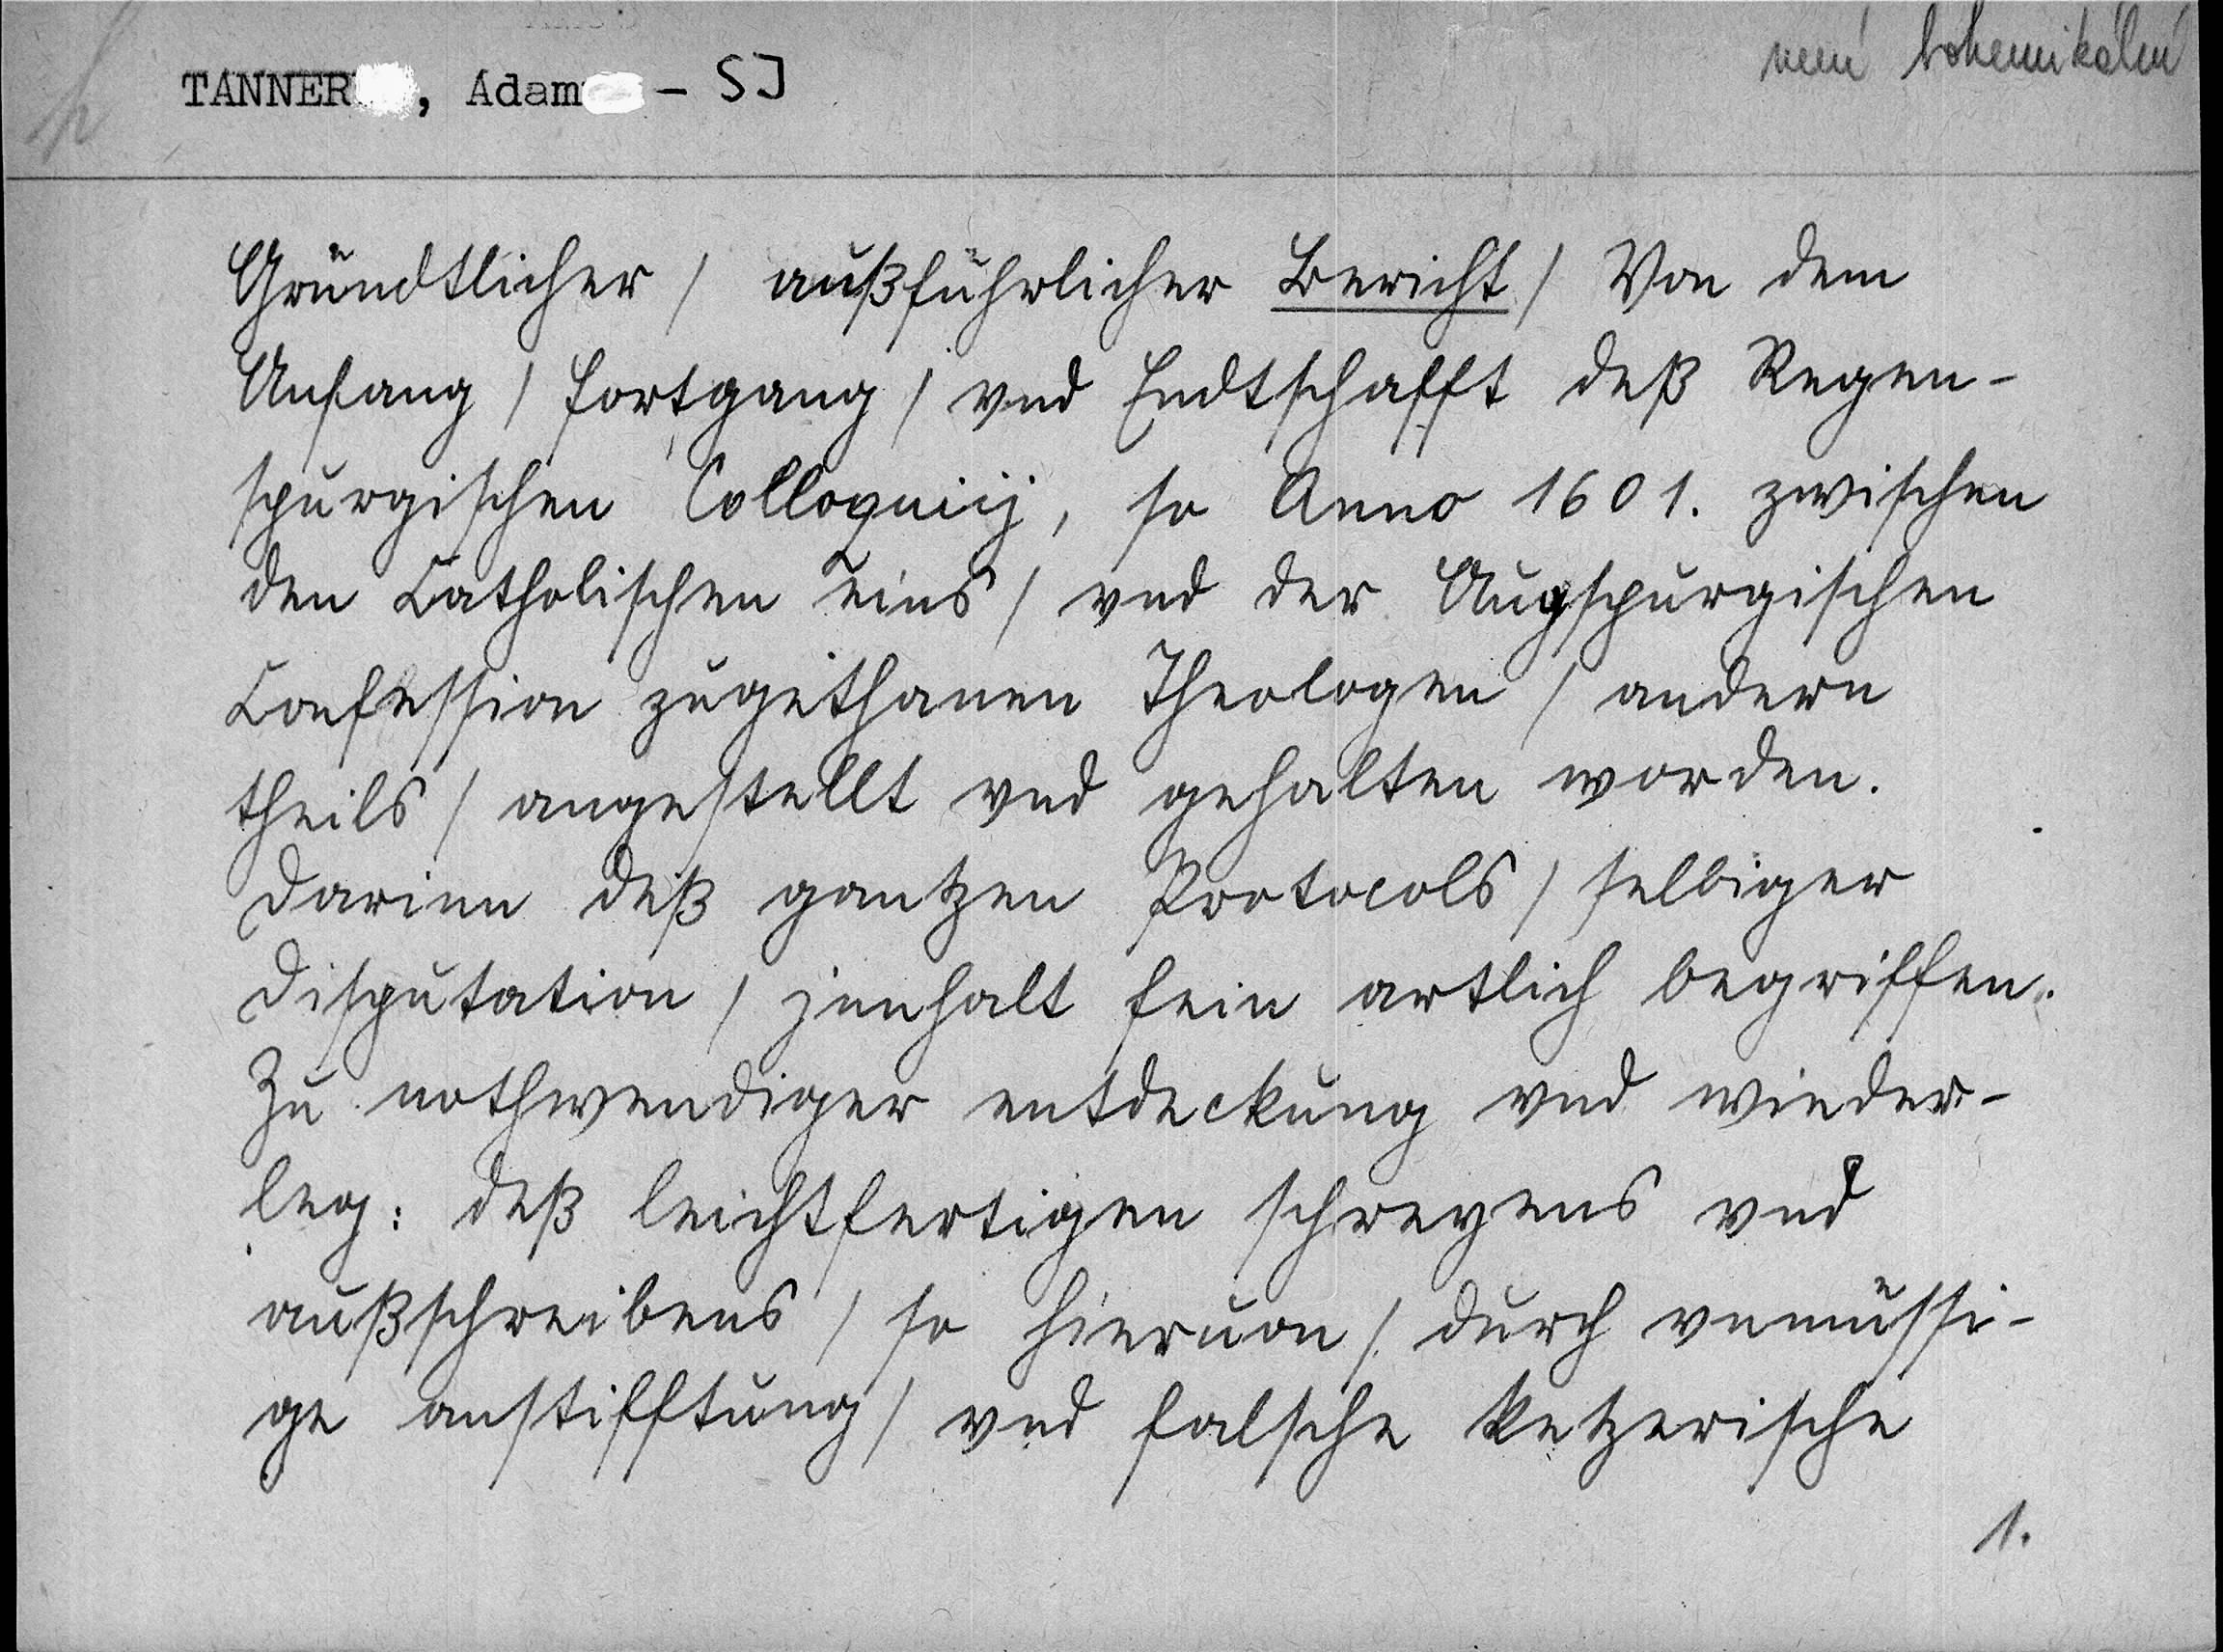 není bohemikální
TANNER, Adam - SJ
Gründtlicher / außführlicher Bericht / Von dem
Anfang / fortgang / vnd Endtschafft deß Regen-
spurgischen Colloquiij, so Anno 1601. zwischen
den Catholischen eins / vnd der Augspurgischen
Confession zugethanen Theologen / andern
theils / angestellt vnd gehalten worden.
Darinn deß gantzen Protocols / selbiger
Disputation / jnnhalt fein artlich begriffen.
Zu nothwendiger entdeckung vnd wieder-
leg: deß leichtfertigen schreyens vnd
außschreibens / so hieruon / durch vnmüssi-
ge anstifftung / vnd falsche ketzerische
1.